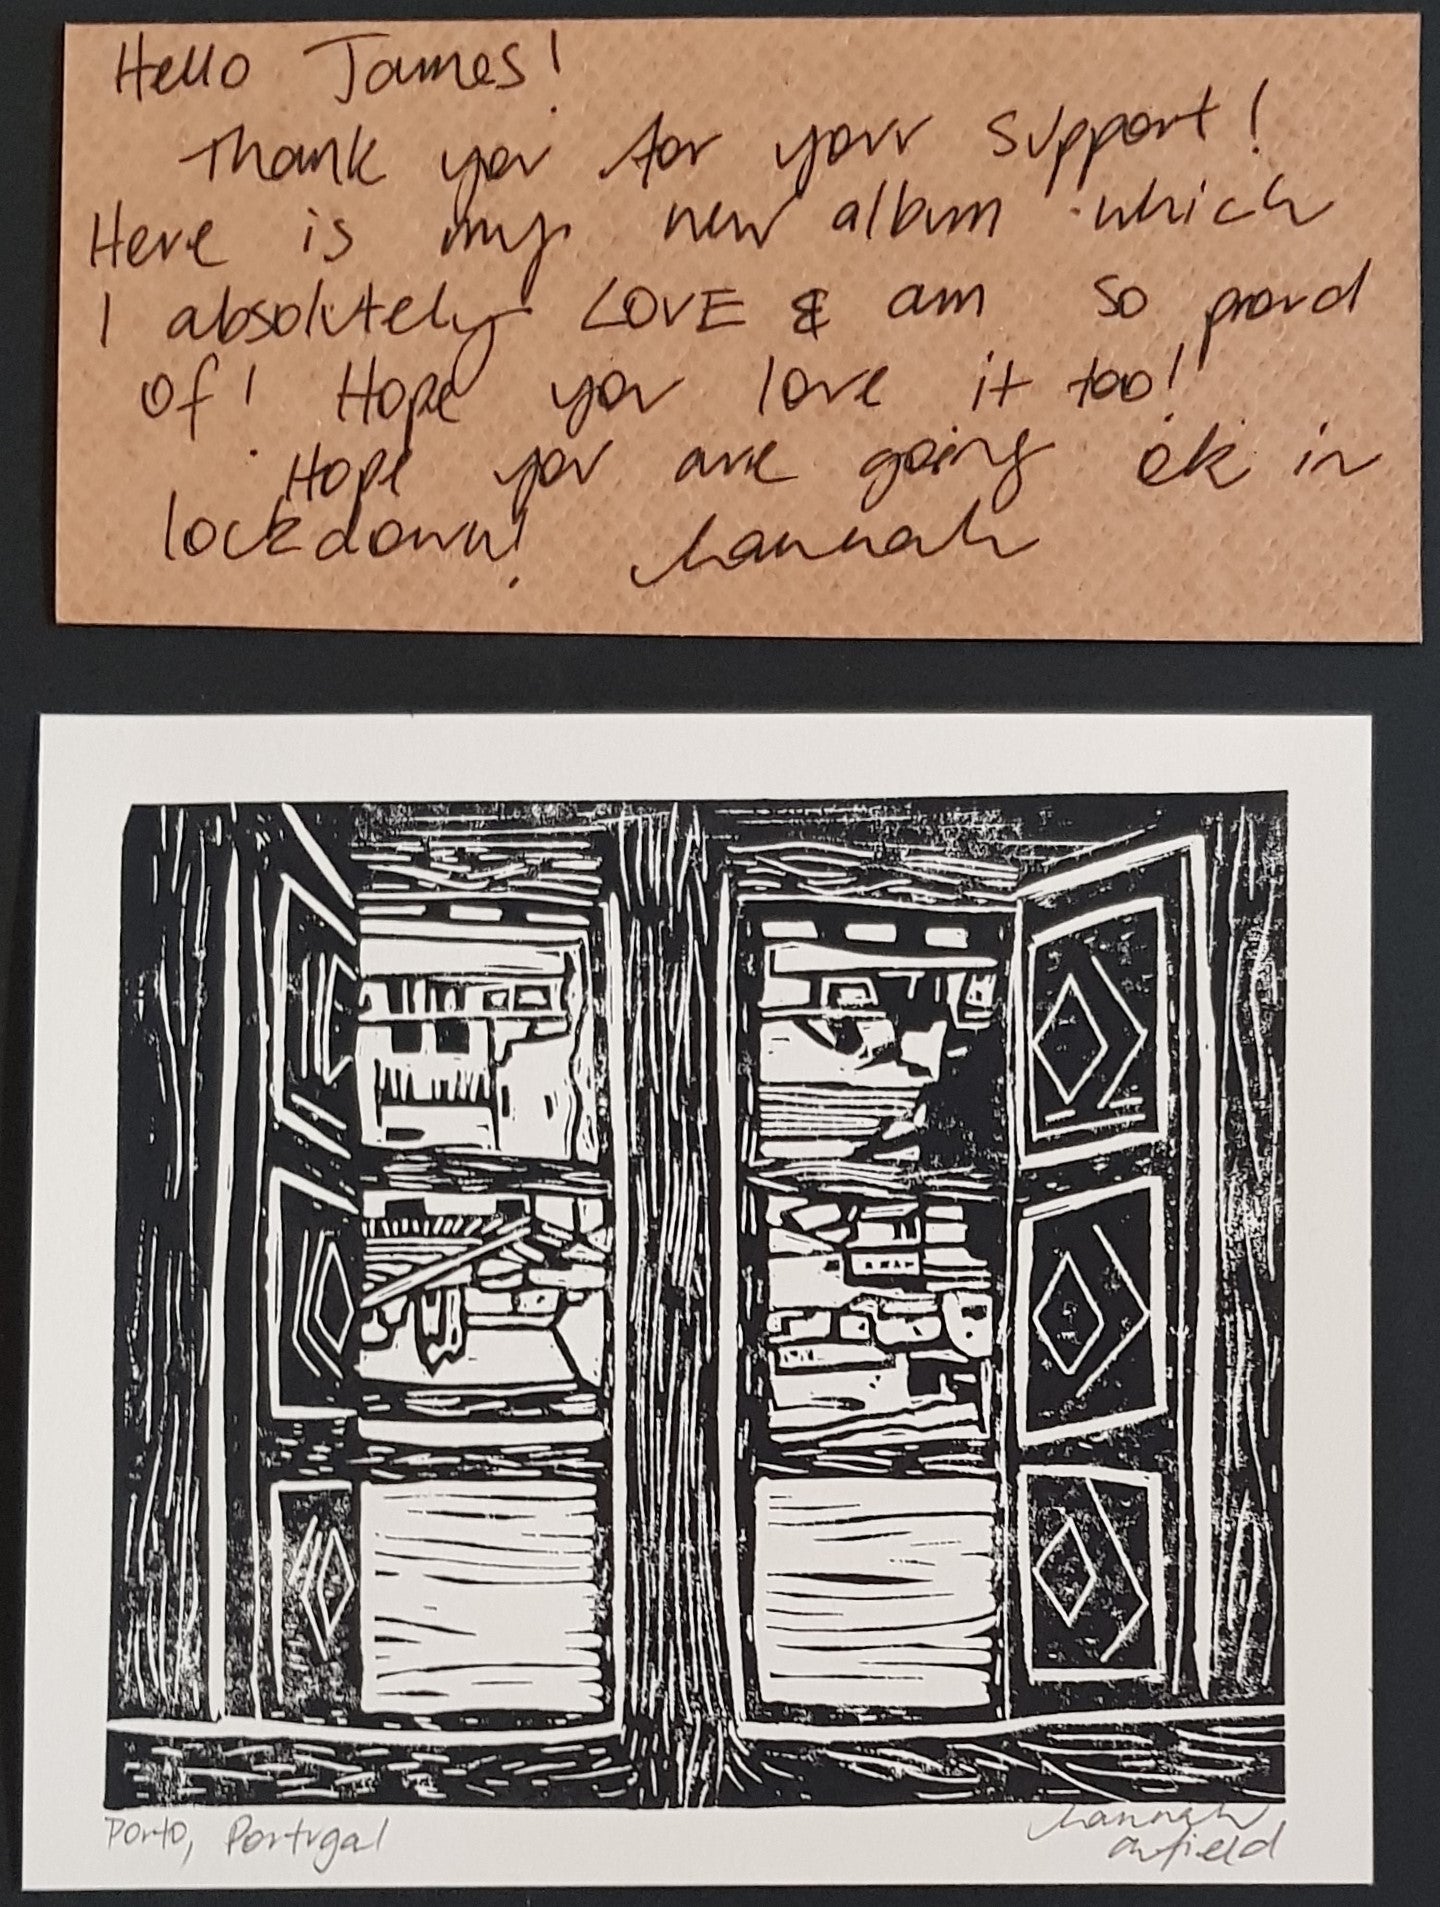 Hello James!
Thank you for your support!
Here is my new album which
I absolutely LOVE & am so proud
of! Hope you love it too!
Hope you are going ok in
lockdown! Hannah
Porto, Portugal
Hannah